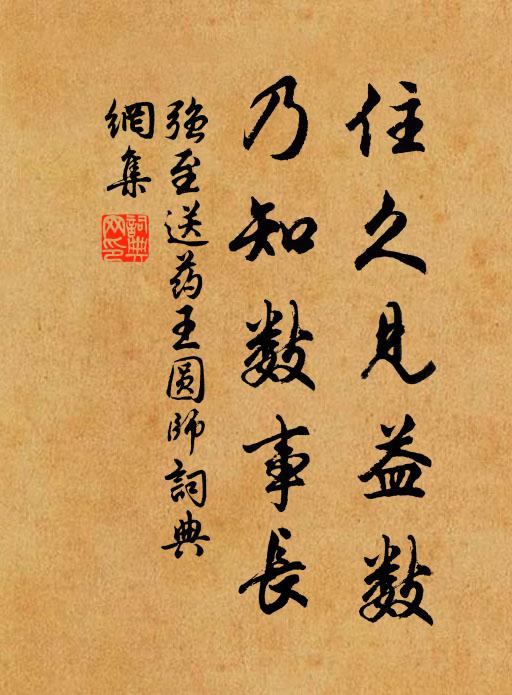 住久見益數
乃知數事長
強至送药王圆師詞典
網集
詞典網印